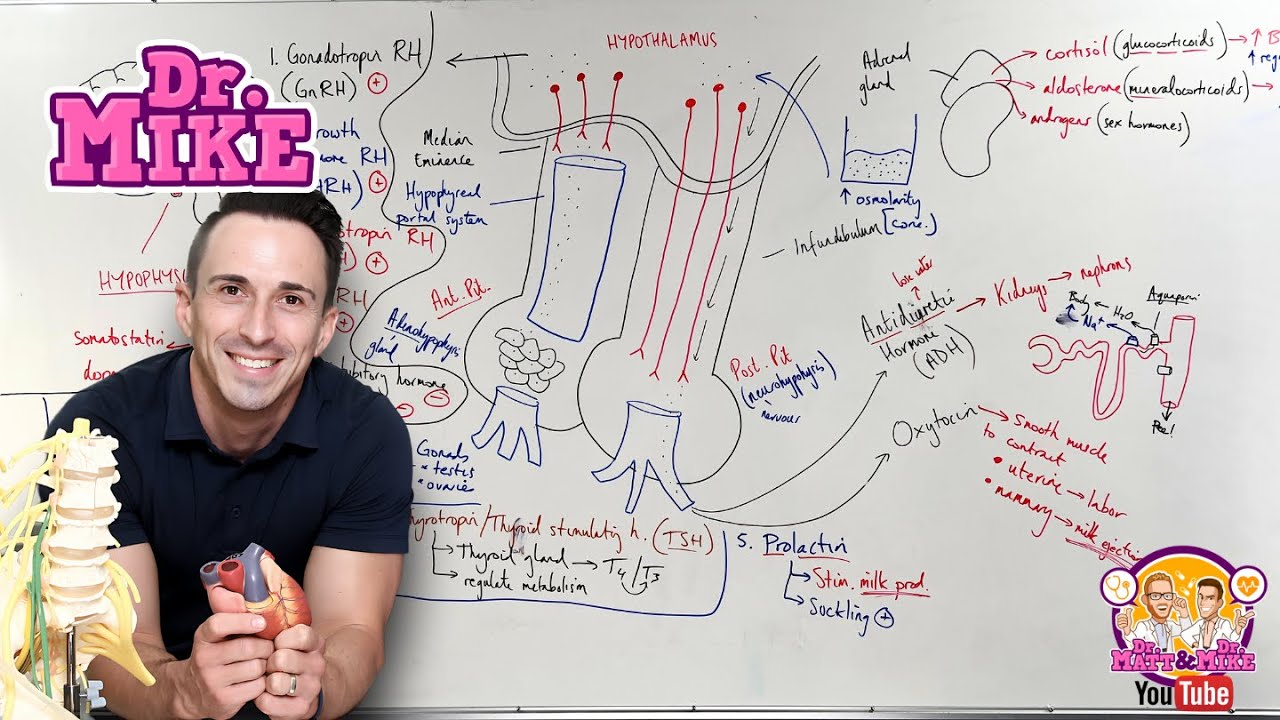 Dr.
MIKE
1. Gonadotropin RH
(GnRH) +
RH
+
RH
+
RH
+
HYPOTHALAMUS
Median
Eminence
Hypophyseal
portal system
Adrenal
gland
cortisol (glucocorticoids) → ↑ B
aldosterone (mineralocorticoids) →
androgens (sex hormones)
↑ osmolarity
[conc.]
Infundibulum
HYPOPHYS
Somatostatin
Ant. Pit.
Adenohypophysis
gland
hormone
Post. Pit
(neurohypophysis)
nervous
lose water
Antidiuretic
Hormone
(ADH)
Kidneys → nephrons
Body
H₂O
Na⁺
Aquaporin
Pee!
Oxytocin
smooth muscle
to contract
• uterine → labor
• mammary → milk ejection
Gonads
* testis
* ovaries
/Thyroid stimulating h. (TSH)
Thyroid gland → T4/T3
regulate metabolism
5. Prolactin
Stim. milk prod.
Suckling +
Dr. MATT & Dr. MIKE
YouTube